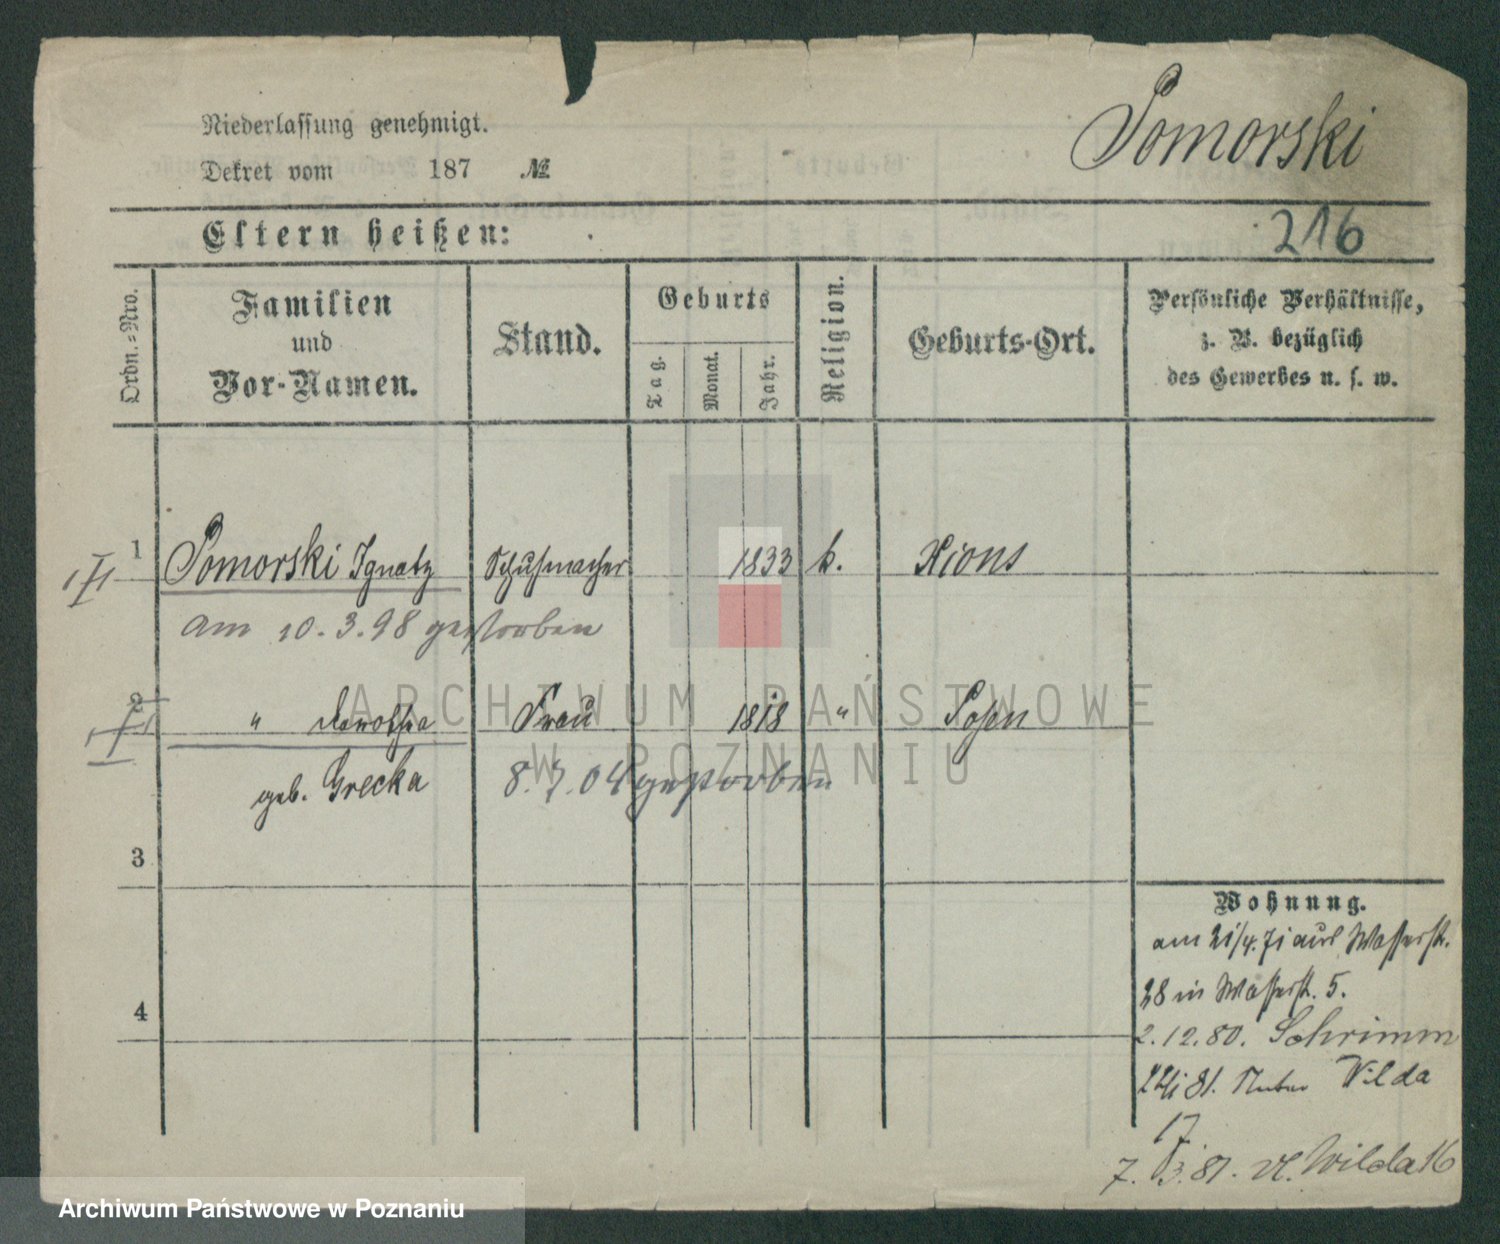 Niederlassung genehmigt.
Dekret vom 187 №
Pomorski
Eltern heißen:
216
Ordn.-Nro.
Familien
und
Vor-Namen.
Stand.
Geburts
Tag.
Monat.
Jahr.
Religion.
Geburts-Ort.
Persönliche Verhältnisse,
z. B. bezüglich
des Gewerbes u. s. w.
1 Pomorski Ignatz Schuhmacher 1833 k. Xions
am 10.3.98 gestorben
2 " Dorothea Frau 1818 " Posen
geb. Grecka 8.7.04 gestorben
3
4
Wohnung.
am 21/4.71 aus Wasserstr.
28 in Wasserst. 5.
2.12.80. Schrimm
81. Unter Wilda
17
7. 3.81. U. Wilda 16
ARCHIWUM PAŃSTWOWE
W POZNANIU
Archiwum Państwowe w Poznaniu